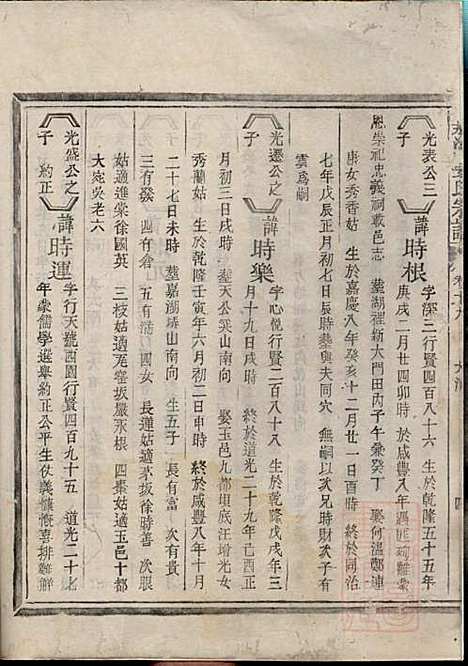 光表公三子
諱時根
字深二行賢四百八十六 生於乾隆五十五年
庚戌二月廿四卯時 於咸豐八年遇匪殉難蒙
恩崇祀忠義祠載邑志 塟湖裡新大門田丙子午兼癸丁 娶何溫鄭連
庚女秀香姑 生於嘉慶八年癸亥十二月廿一日酉時 終於同治
七年戊辰正月初七日辰時塟與夫同穴 無嗣以次兄時財次子有
雲爲嗣
光遷公之子
諱時樂
字心悅行賢二百八十八 生於乾隆戊戌年三
月十九日戌時 終於道光二十九年己酉正
月初三日戌時 塟天公棠山南向 娶玉邑九都垻底汪增光女
秀蘭姑 生於乾隆壬寅年六月初二日申時 終於咸豐八年十月
二十七日未時 塟嘉湖塝山南向 生五子 長有富 次有貴
三有發 四有倉 五有滿 四女 長蓮姑適茅坂徐時善 次眼
姑適進榮徐國英 三枝姑適 窑坂嚴永根 四棗姑適玉邑十都
大垸吳老六
光盛公之子 約正
諱時運
字行天號西園行賢四百九十五 道光二十七
年彙儒學選舉約正公平生仗義慷慨喜排難解